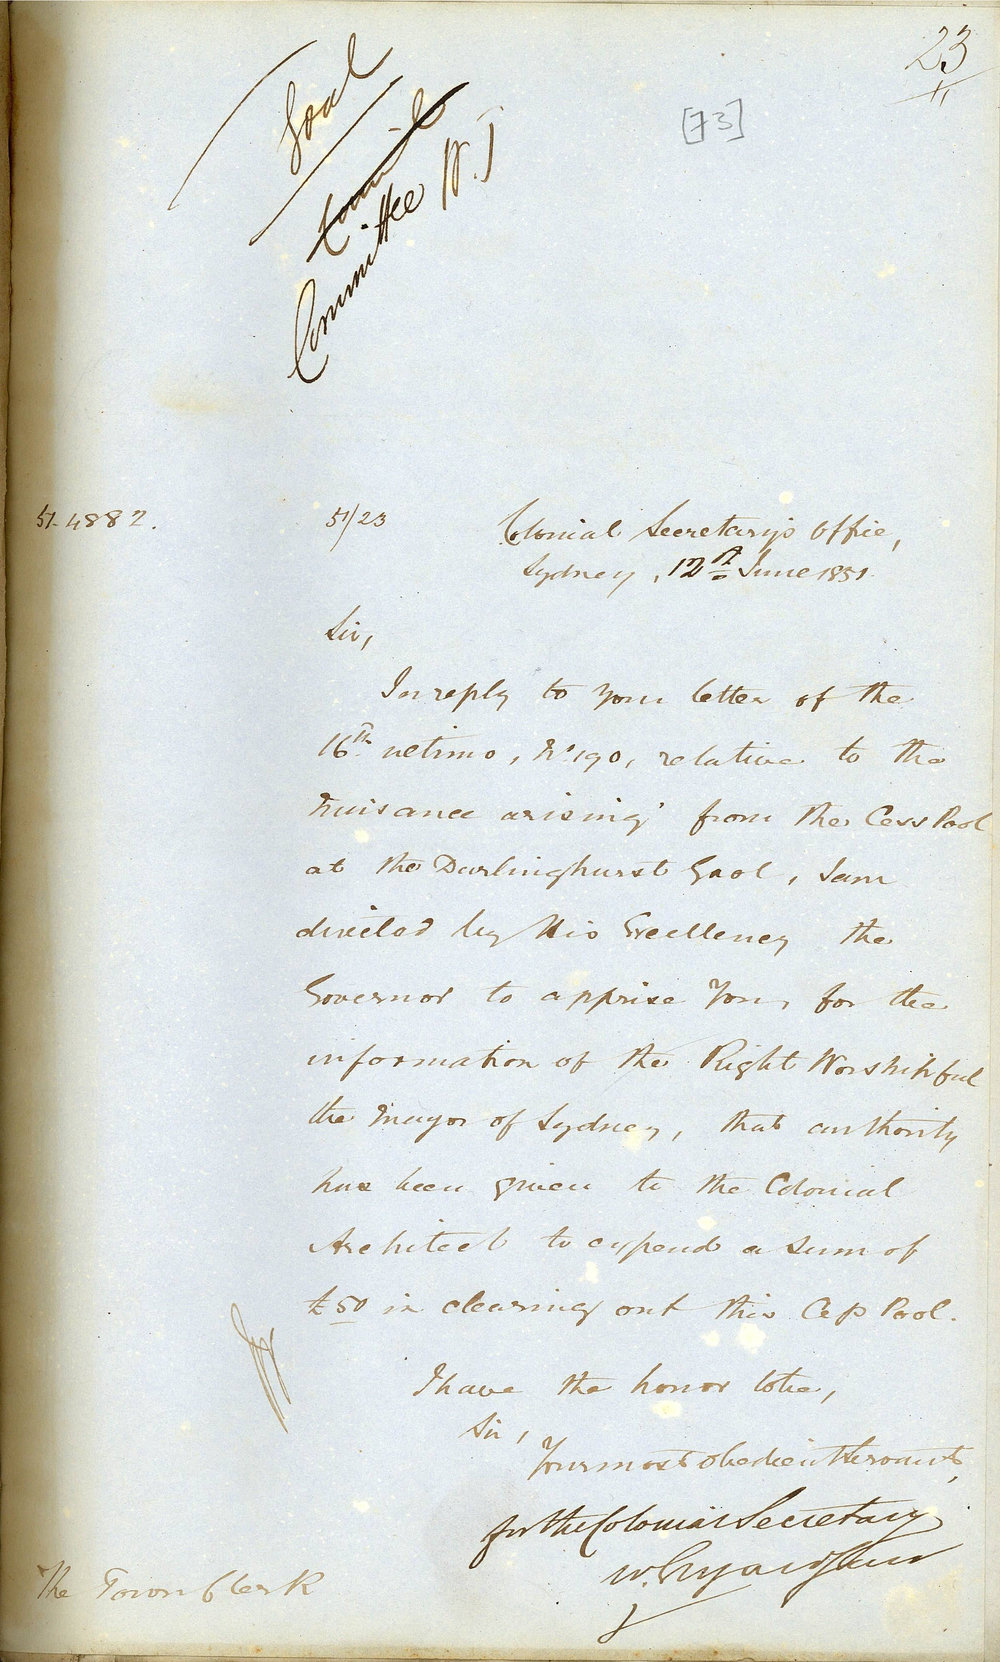 23
[73]
Goal
Council
Committee W.J
51-4882.
51/23
Colonial Secretary's Office,
Sydney, 12th June 1851.
Sir,
In reply to your letter of the
16th ultimo, No 190, relative to the
nuisance arising from the Cess Pool
at the Darlinghurst Gaol, I am
directed by His Excellency the
Governor to apprise you, for the
information of the Right Worshipful
the Mayor of Sydney, that authority
has been given to the Colonial
Architect to expend a sum of
£50 in clearing out this Cess Pool.
I have the honor to be,
Sir,
Your most obedient Servant,
for the Colonial Secretary
W. Elyard Jun
The Town Clerk